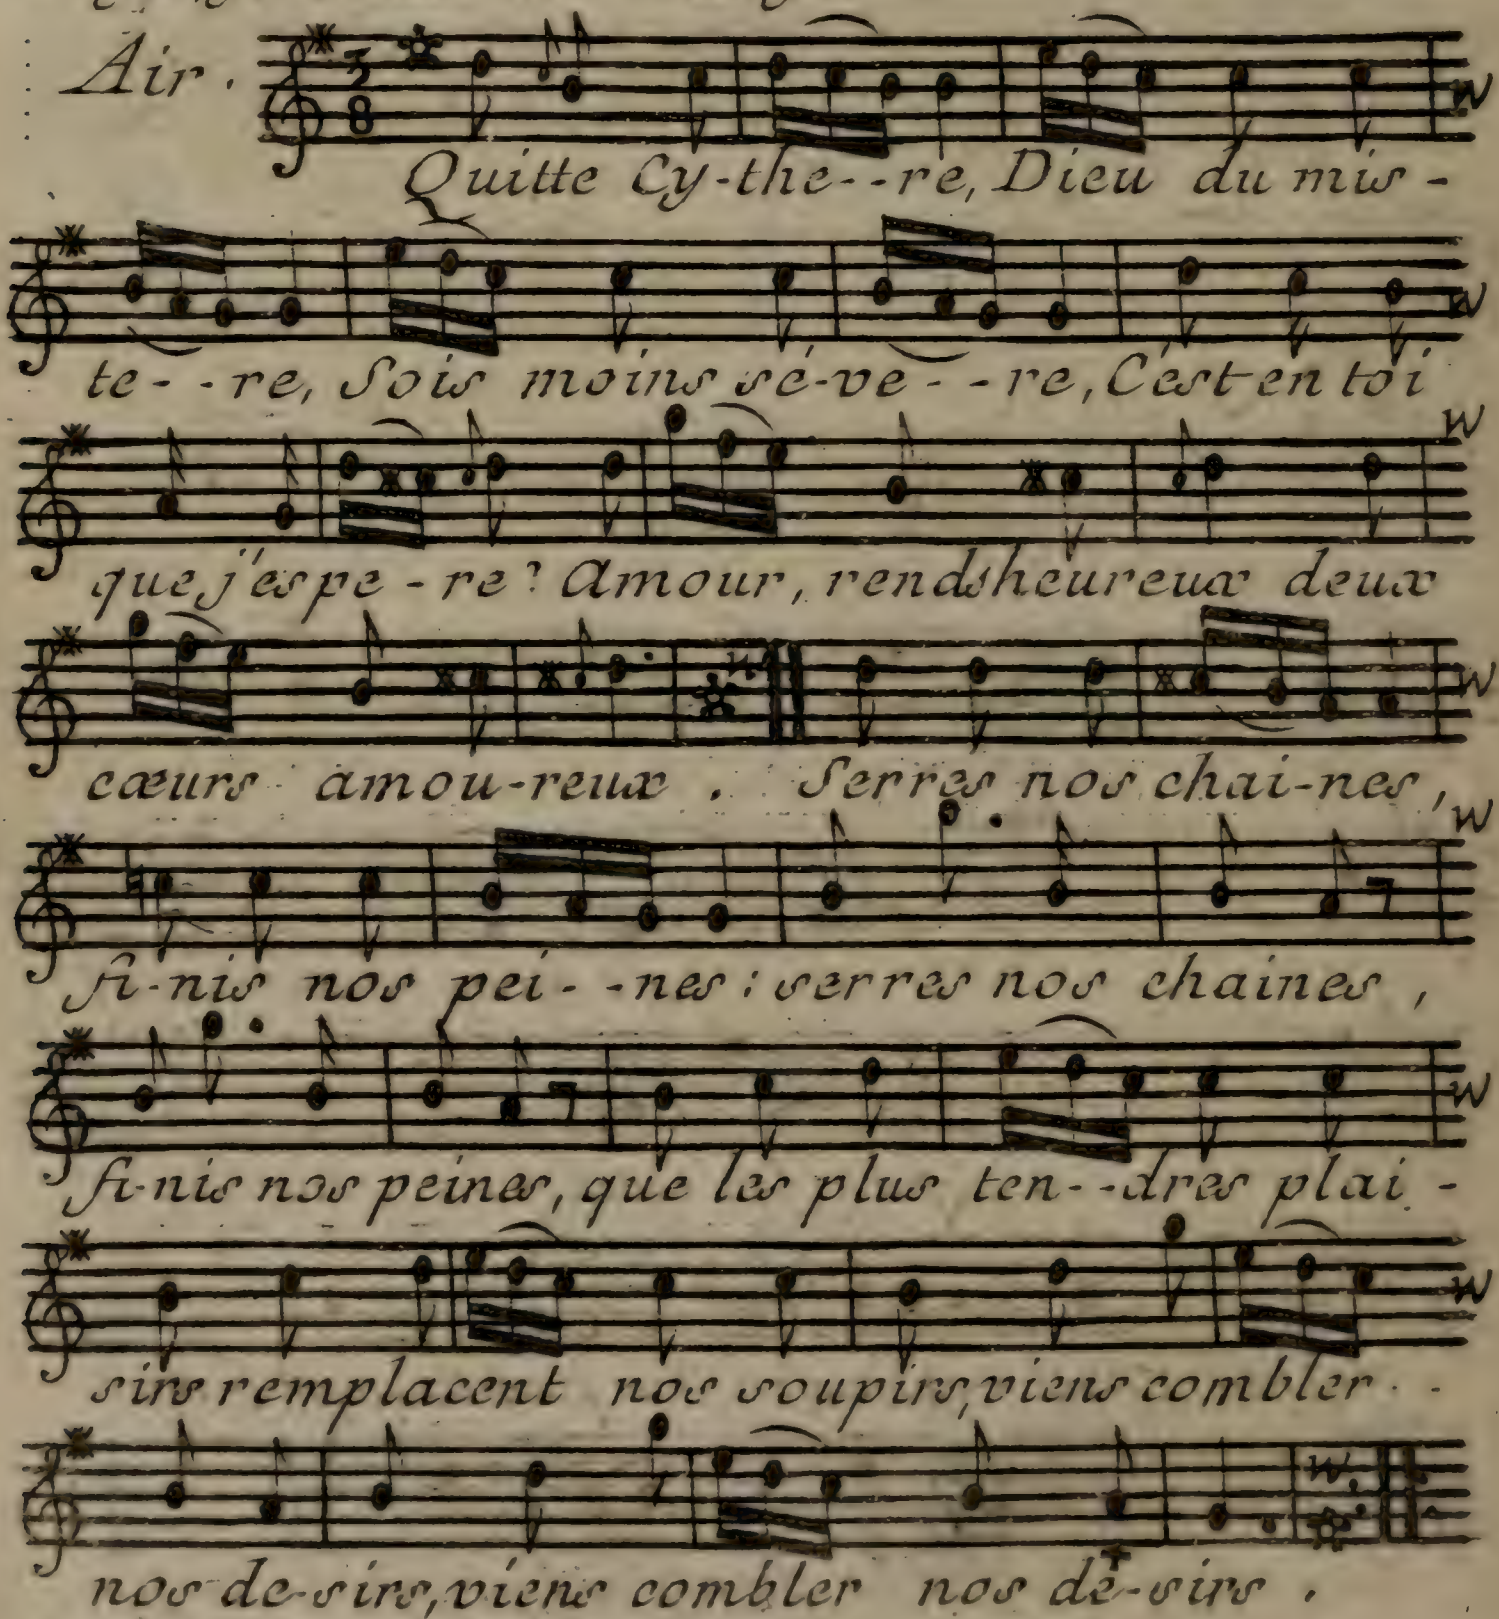 Air.
3
8
Quitte Cy-the--re, Dieu du mis-
te--re, Sois moins sé-ve--re, C'est en toi
que j'espe-re? Amour, rends heureux deux
cœurs amou-reux. Serres nos chai-nes,
fi-nis nos pei--nes: serres nos chaines,
fi-nis nos peines, que les plus ten--dres plai-
sirs remplacent nos soupirs, viens combler
nos de-sirs, viens combler nos dé-sirs.